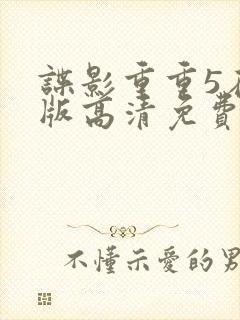 諜影重重5
版高清免費
不懂示愛的男